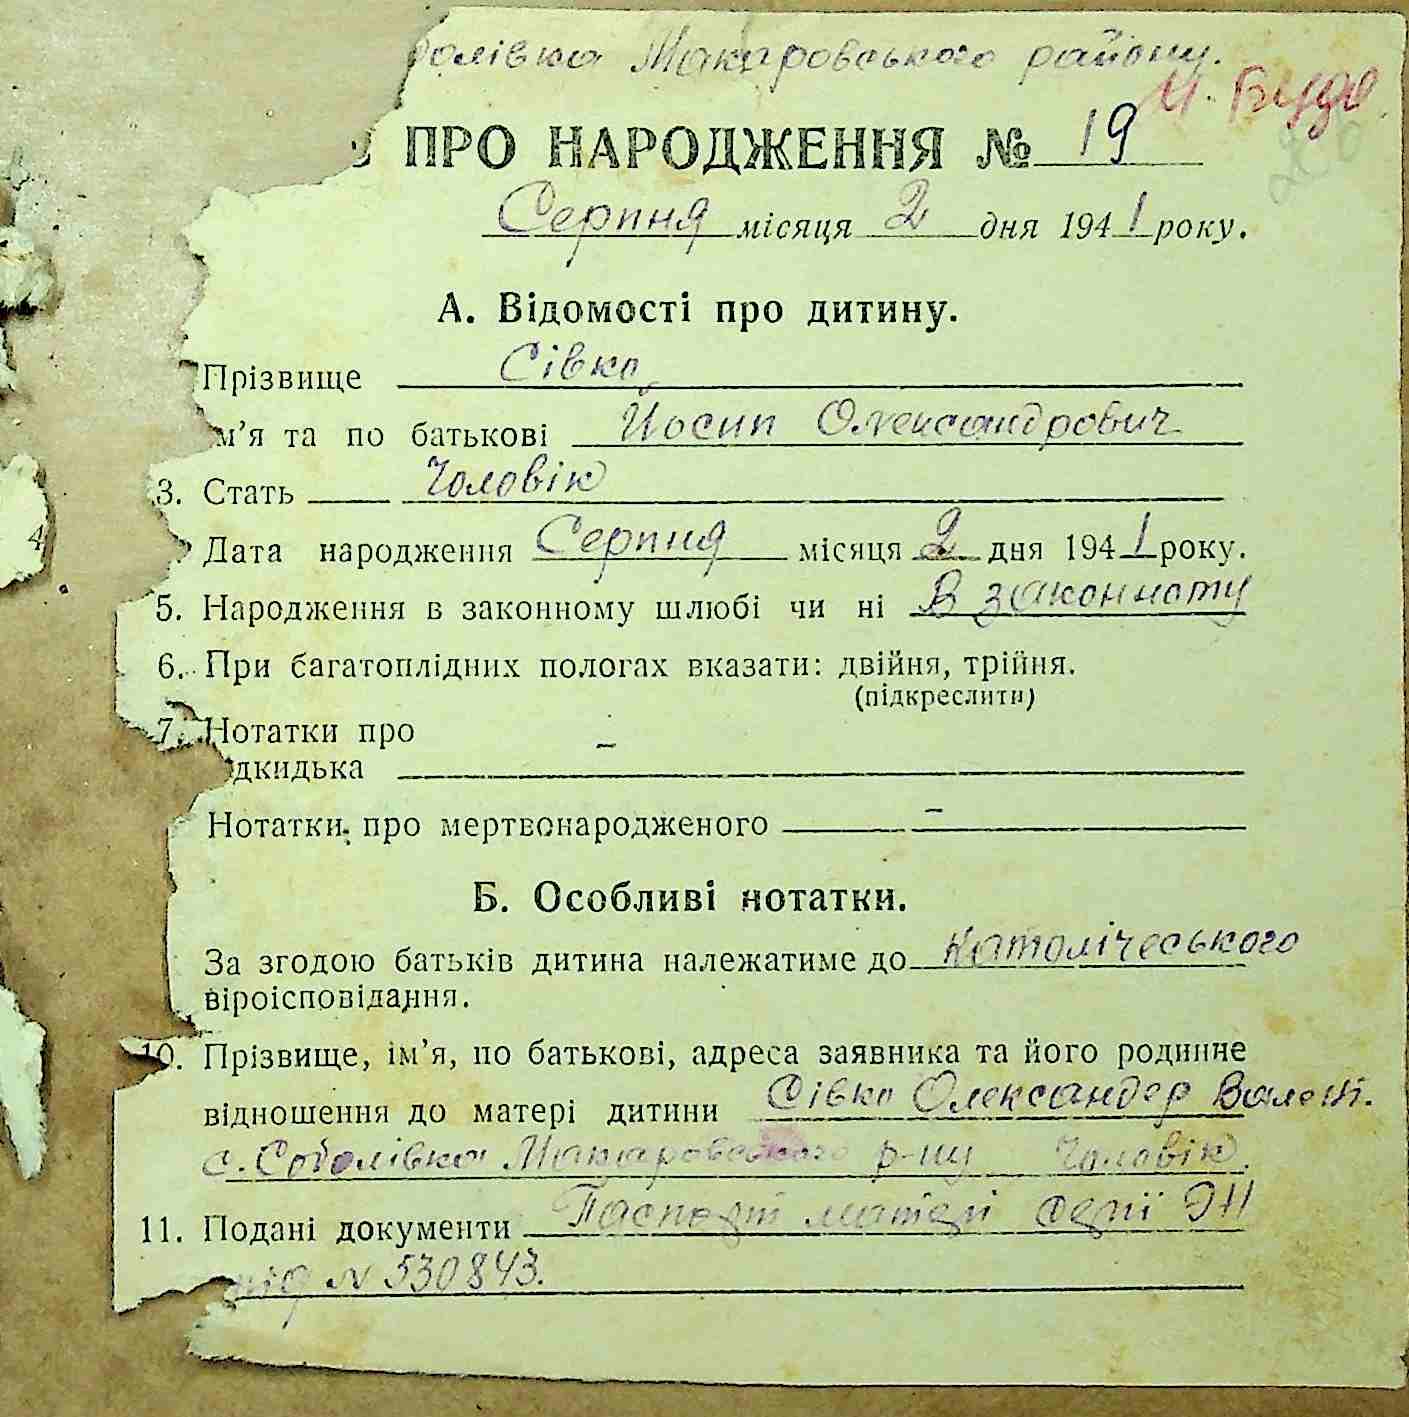 олівка Макаровського району.
М. Буда
ПРО НАРОДЖЕННЯ № 19
Серпня місяця 2 дня 1941 року.
А. Відомості про дитину.
Прізвище Сівко
м’я та по батькові Йосип Олександрович
3. Стать Чоловік
Дата народження Серпня місяця 2 дня 1941 року.
5. Народження в законному шлюбі чи ні В законному
6. При багатоплідних пологах вказати: двійня, трійня.
(підкреслити)
7. Нотатки про
ідкидька –
Нотатки про мертвонародженого –
Б. Особливі нотатки.
За згодою батьків дитина належатиме до Католічеського
віроісповідання.
10. Прізвище, ім’я, по батькові, адреса заявника та його родинне
відношення до матері дитини Сівко Олександер Вален.
с. Соболівка Макаровського р-ну Чоловік.
11. Подані документи Паспорт матері серії ЭН
N 530843.
4